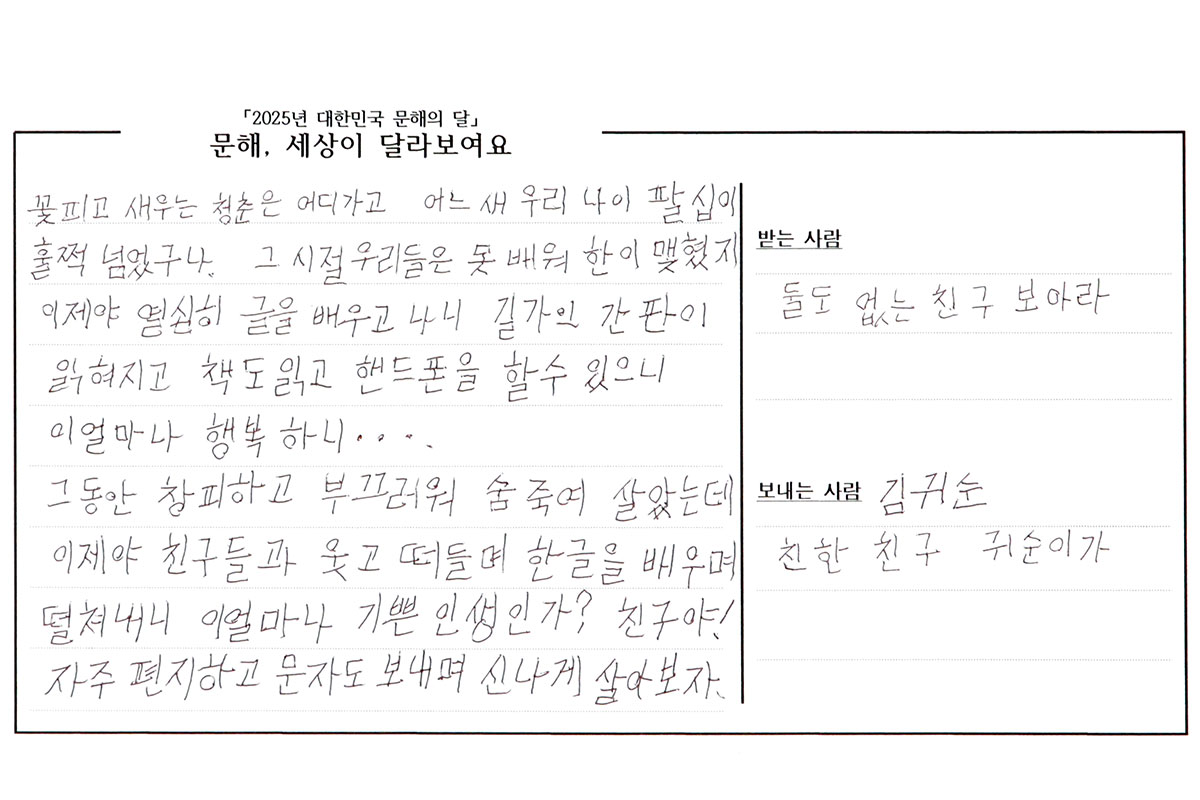 「2025년 대한민국 문해의 달」
문해, 세상이 달라보여요
꽃피고 새우는 청춘은 어디가고 어느새 우리 나이 팔십이
훌쩍 넘었구나. 그 시절 우리들은 못 배워 한이 맺혔지
이제야 열심히 글을 배우고 나니 길가의 간판이
읽혀지고 책도 읽고 핸드폰을 할 수 있으니
이얼마나 행복하니....
그동안 창피하고 부끄러워 숨죽여 살았는데
이제야 친구들과 웃고 떠들며 한글을 배우며
떨쳐내니 이얼마나 기쁜 인생인가? 친구야!
자주 편지하고 문자도 보내며 신나게 살아보자.
받는 사람
둘도 없는 친구 보아라
보내는 사람 김귀순
친한 친구 귀순이가